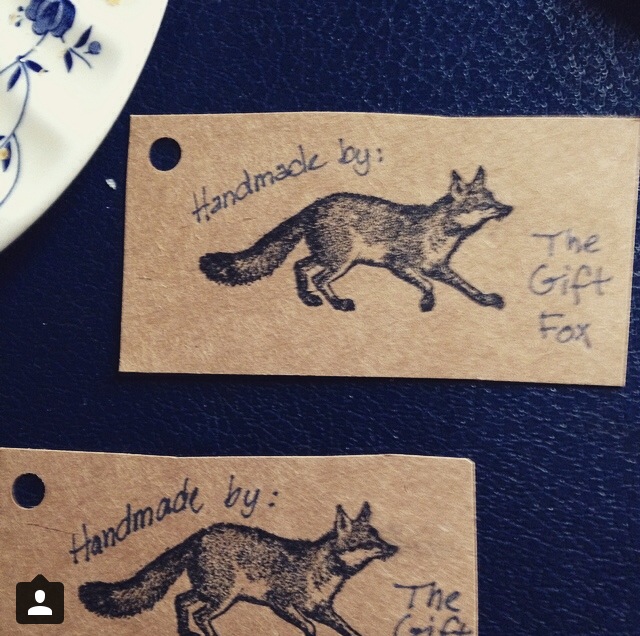 Handmade by:
The
Gift
Fox
Handmade by:
The
Gift